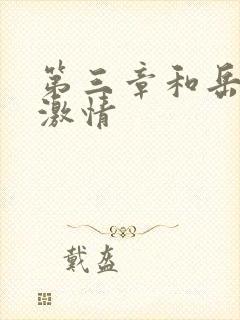 第三章和岳
激情
戴盔